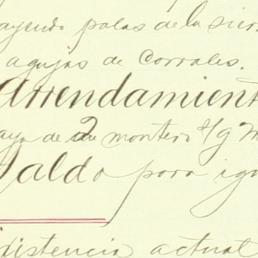 ayendo palas de la sier
agujas de corrales.
Arrendamient
aya de 2 montero
Saldo para igu
distencia actual